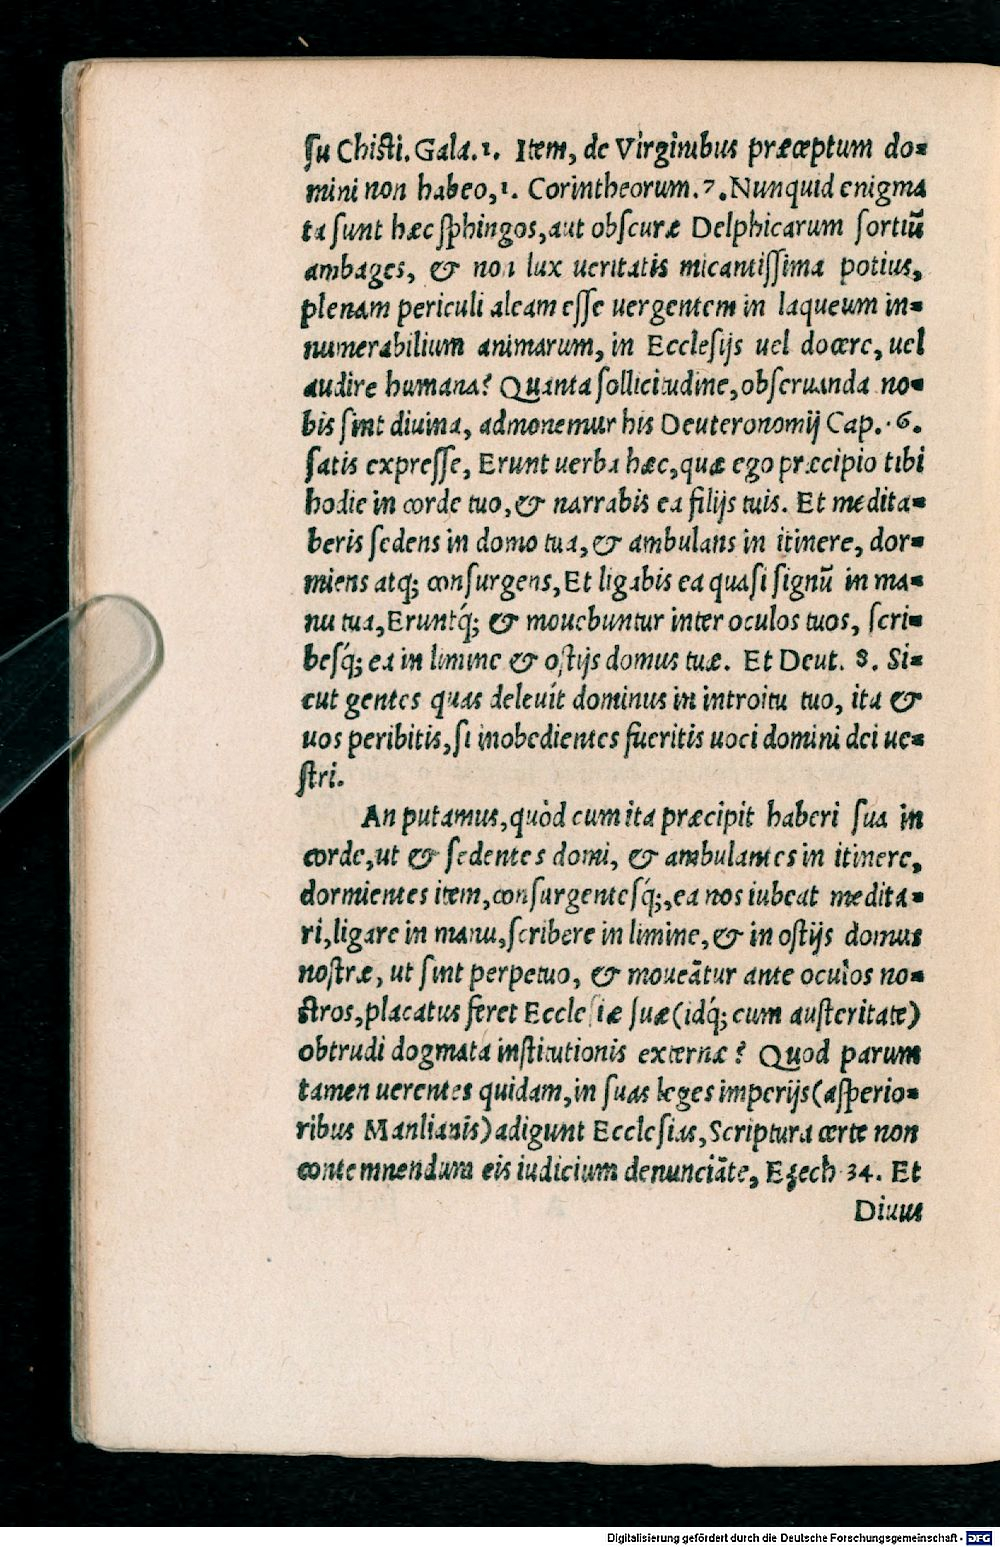 ſu Chiſti. Gala. 1. Item, de Virginibus præceptum do=
mini non habeo, 1. Corintheorum. 7. Nunquid enigma
ta ſunt hæc ſphingos, aut obſcuræ Delphicarum ſortiū
ambages, & non lux ueritatis micantiſſima potius,
plenam periculi aleam eſſe uergentem in laqueum in=
numerabilium animarum, in Eccleſijs uel docere, uel
audire humana? Quanta ſollicitudine, obſeruanda no=
bis ſint diuina, admonemur his Deuteronomij Cap. 6.
ſatis expreſſe, Erunt uerba hæc, quæ ego præcipio tibi
hodie in corde tuo, & narrabis ea filijs tuis. Et medita=
beris ſedens in domo tua, & ambulans in itinere, dor=
miens atq; conſurgens, Et ligabis ea quaſi ſignū in ma=
nu tua, Eruntq́; & mouebuntur inter oculos tuos, ſcri=
beſq́; ea in limine & oſtijs domus tuæ. Et Deut. 8. Si=
cut gentes quas deleuit dominus in introitu tuo, ita &
uos peribitis, ſi inobedientes fueritis uoci domini dei ue=
ſtri.
An putamus, quòd cum ita præcipit haberi ſua in
corde, ut & ſedentes domi, & ambulantes in itinere,
dormientes item, conſurgenteſq́;, ea nos iubeat medita=
ri, ligare in manu, ſcribere in limine, & in oſtijs domus
noſtræ, ut ſint perpetuo, & moueātur ante oculos no=
ſtros, placatus feret Eccleſiæ ſuæ (idq́; cum auſteritate)
obtrudi dogmata inſtitutionis externæ? Quod parum
tamen uerentes quidam, in ſuas leges imperijs (aſperio=
ribus Manlianis) adigunt Eccleſias, Scriptura certe non
contemnendum eis iudicium denunciāte, Ezech 34. Et
Diuus
Digitalisierung gefördert durch die Deutsche Forschungsgemeinschaft - DFG